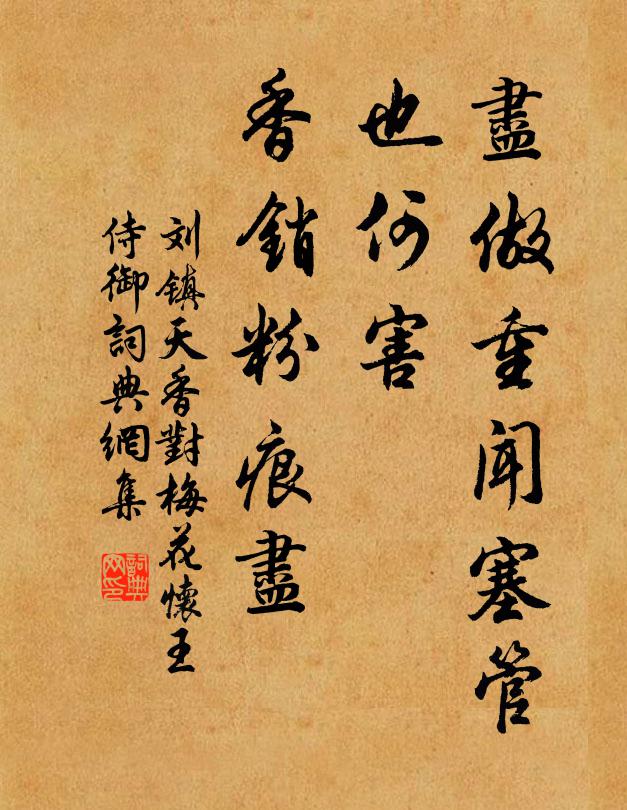 盡做重聞塞管
也何害
香銷粉痕盡
刘镇天香對梅花懷王
侍御詞典網集
詞典
网印